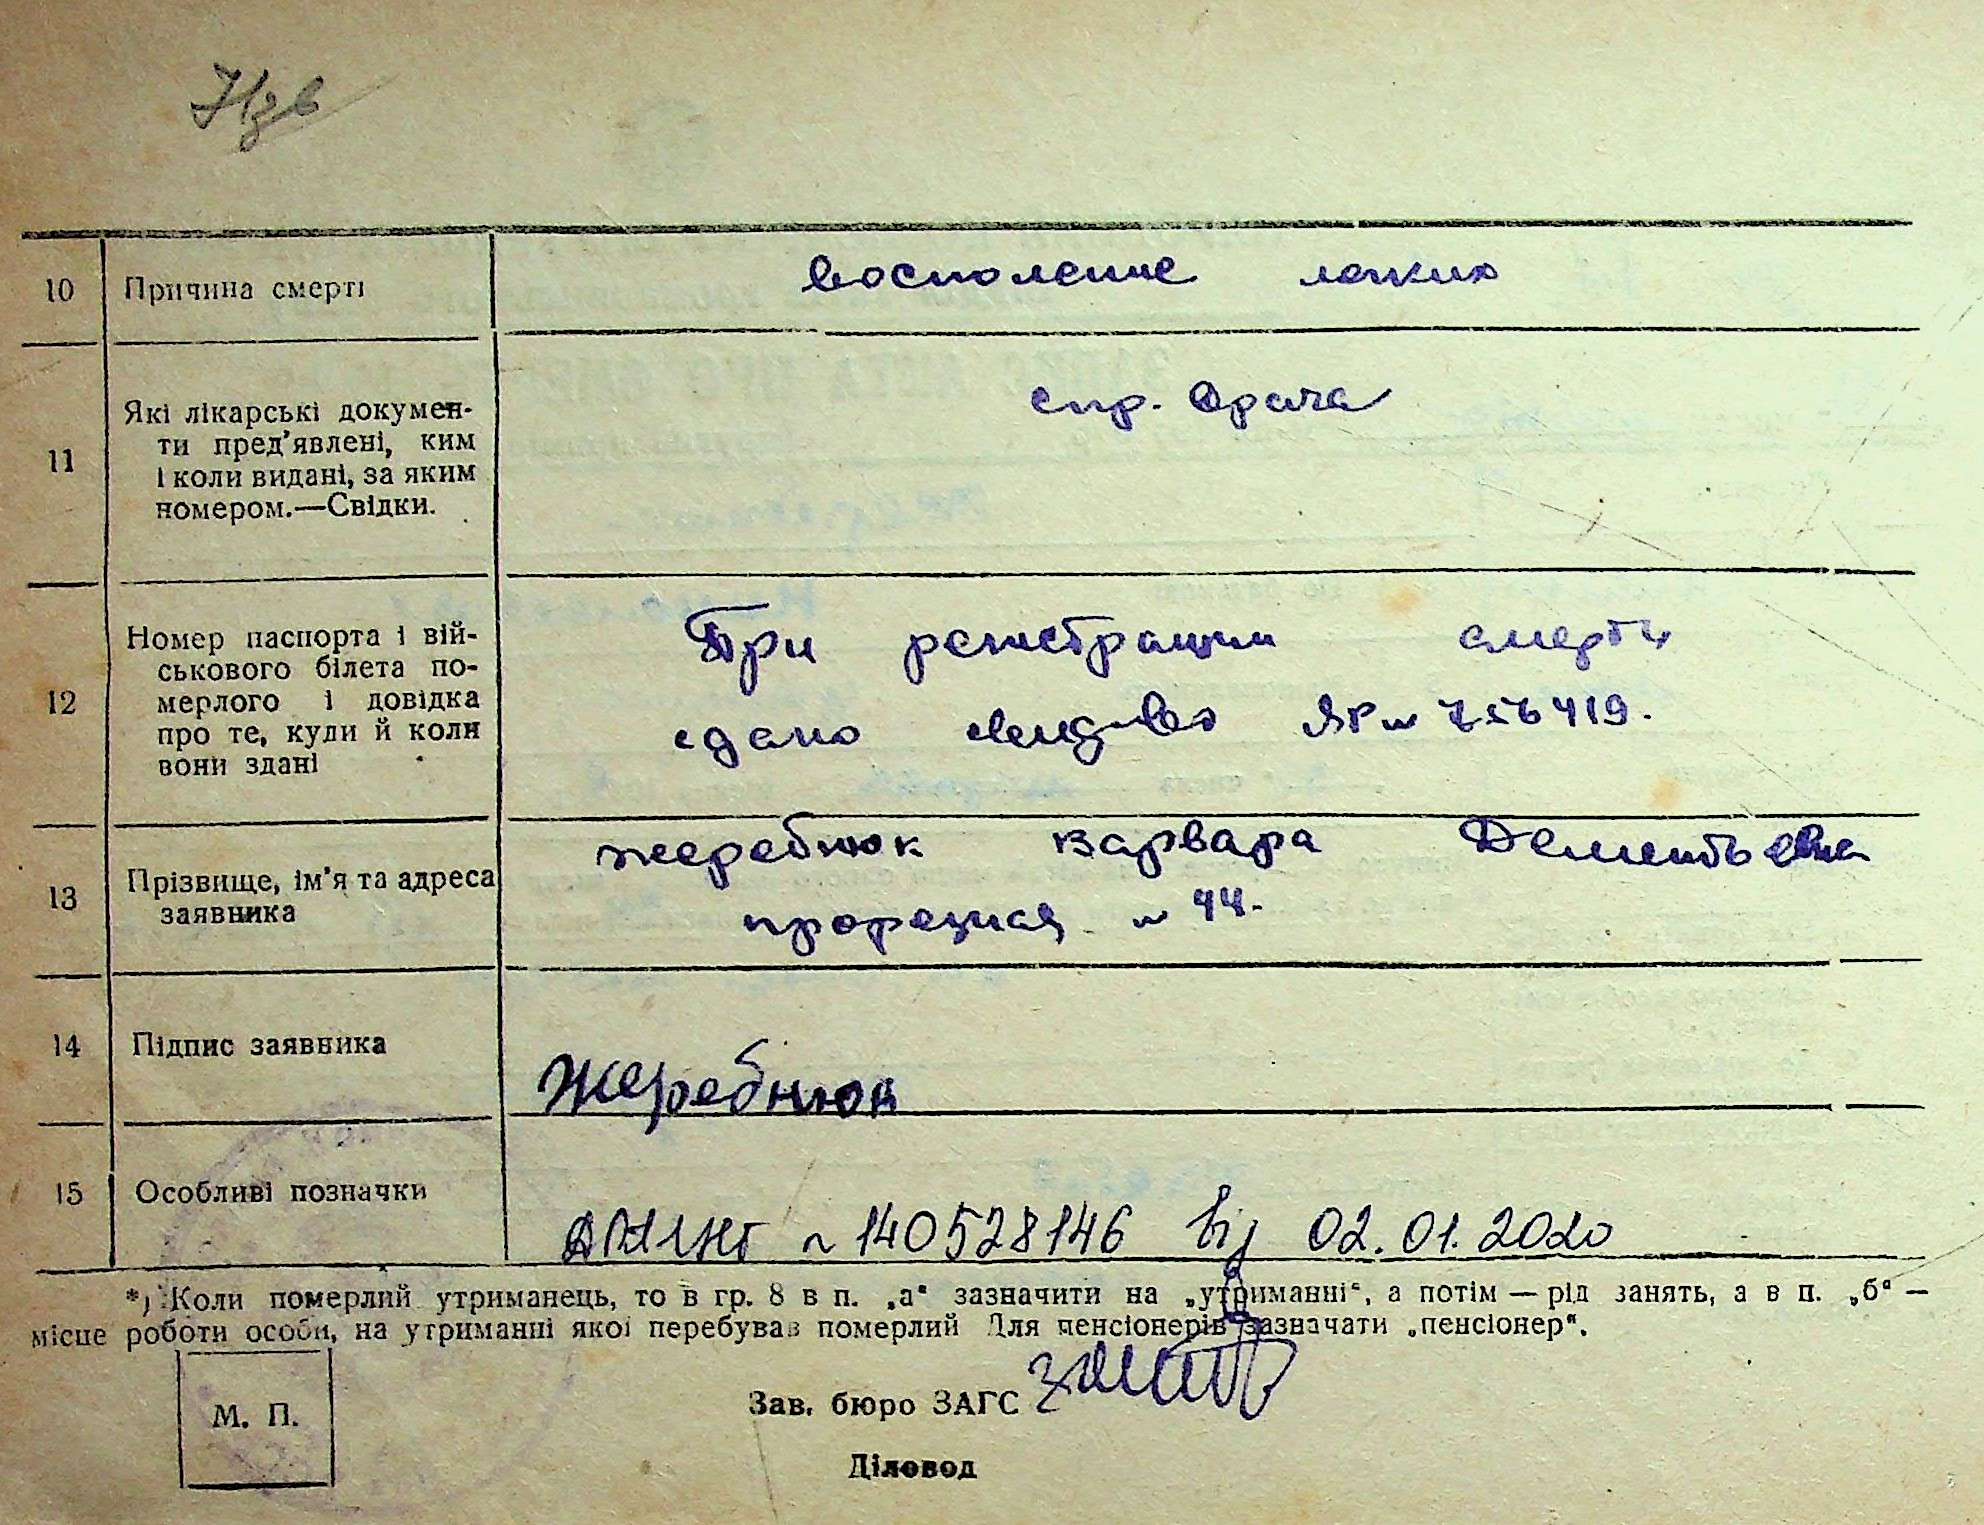 10 Причина смерті восполение легких
11 Які лікарські докумен-
ти пред'явлені, ким
і коли видані, за яким
номером.—Свідки.
спр. врача
12 Номер паспорта і вій-
ськового білета по-
мерлого і довідка
про те, куди й коли
вони здані
При регистрации смерти
сдано свид-во ЯР № 756419.
13 Прізвище, ім'я та адреса
заявника
Жеребнюк Варвара Дементьевна
прорезная № 44.
14 Підпис заявника Жеребнюк
15 Особливі позначки
№ 140528146 від 02.01.2020
*) Коли померлий утриманець, то в гр. 8 в п. „а“ зазначити на „утриманні“, а потім — рід занять, а в п. „б“ —
місце роботи особи, на утриманні якої перебував померлий Для пенсіонерів зазначати „пенсіонер“.
М. П.
Зав. бюро ЗАГС
Діловод